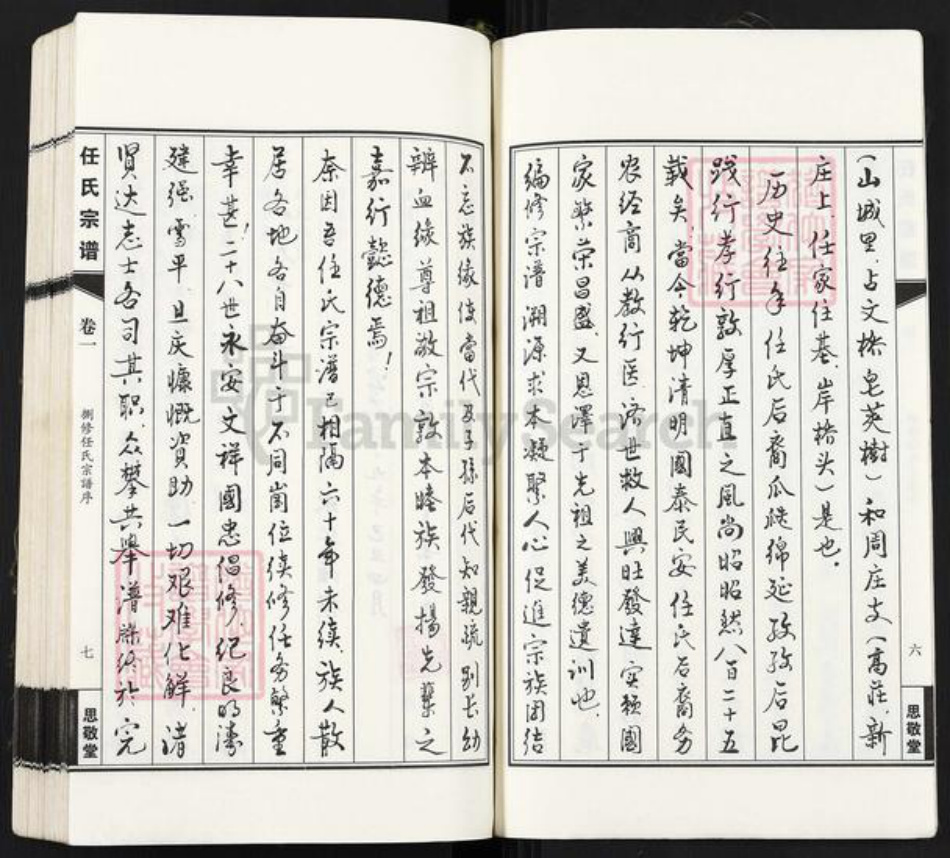 (山城里、占文桥、皂荚樹)和周庄支(高莊、新
庄上、任家住基、岸桥头)是也。
历史往年任氏后裔瓜瓞绵延孜孜后昆
践行孝行敦厚正直之風尚昭昭然八百二十五
载矣。當今乾坤清明國泰民安任氏后裔务
农经商从教行医济世救人興旺發達实赖國
家繁荣昌盛、又恩澤于先祖之美德遺訓也。
编修宗谱溯源求本凝聚人心促進宗族团结
六
思敬堂
不忘族缘使當代及子孫后代知親疏别长幼
辨血缘尊祖敬宗敦本睦族發揚先輩之
嘉行懿德焉!
奈因吾任氏宗譜已相隔六十年未续、族人散
居各地各自奋斗于不同崗位续修任务繁重
幸甚!二十八世永安文祥國忠倡修、纪良明涛
建强雪平、旦庆慷慨资助、一切艰难化解、诸
賢达志士各司其职、众擎共舉譜牒终於完
任氏宗谱
卷一
捌修任氏宗譜序
七
思敬堂
FamilySearch